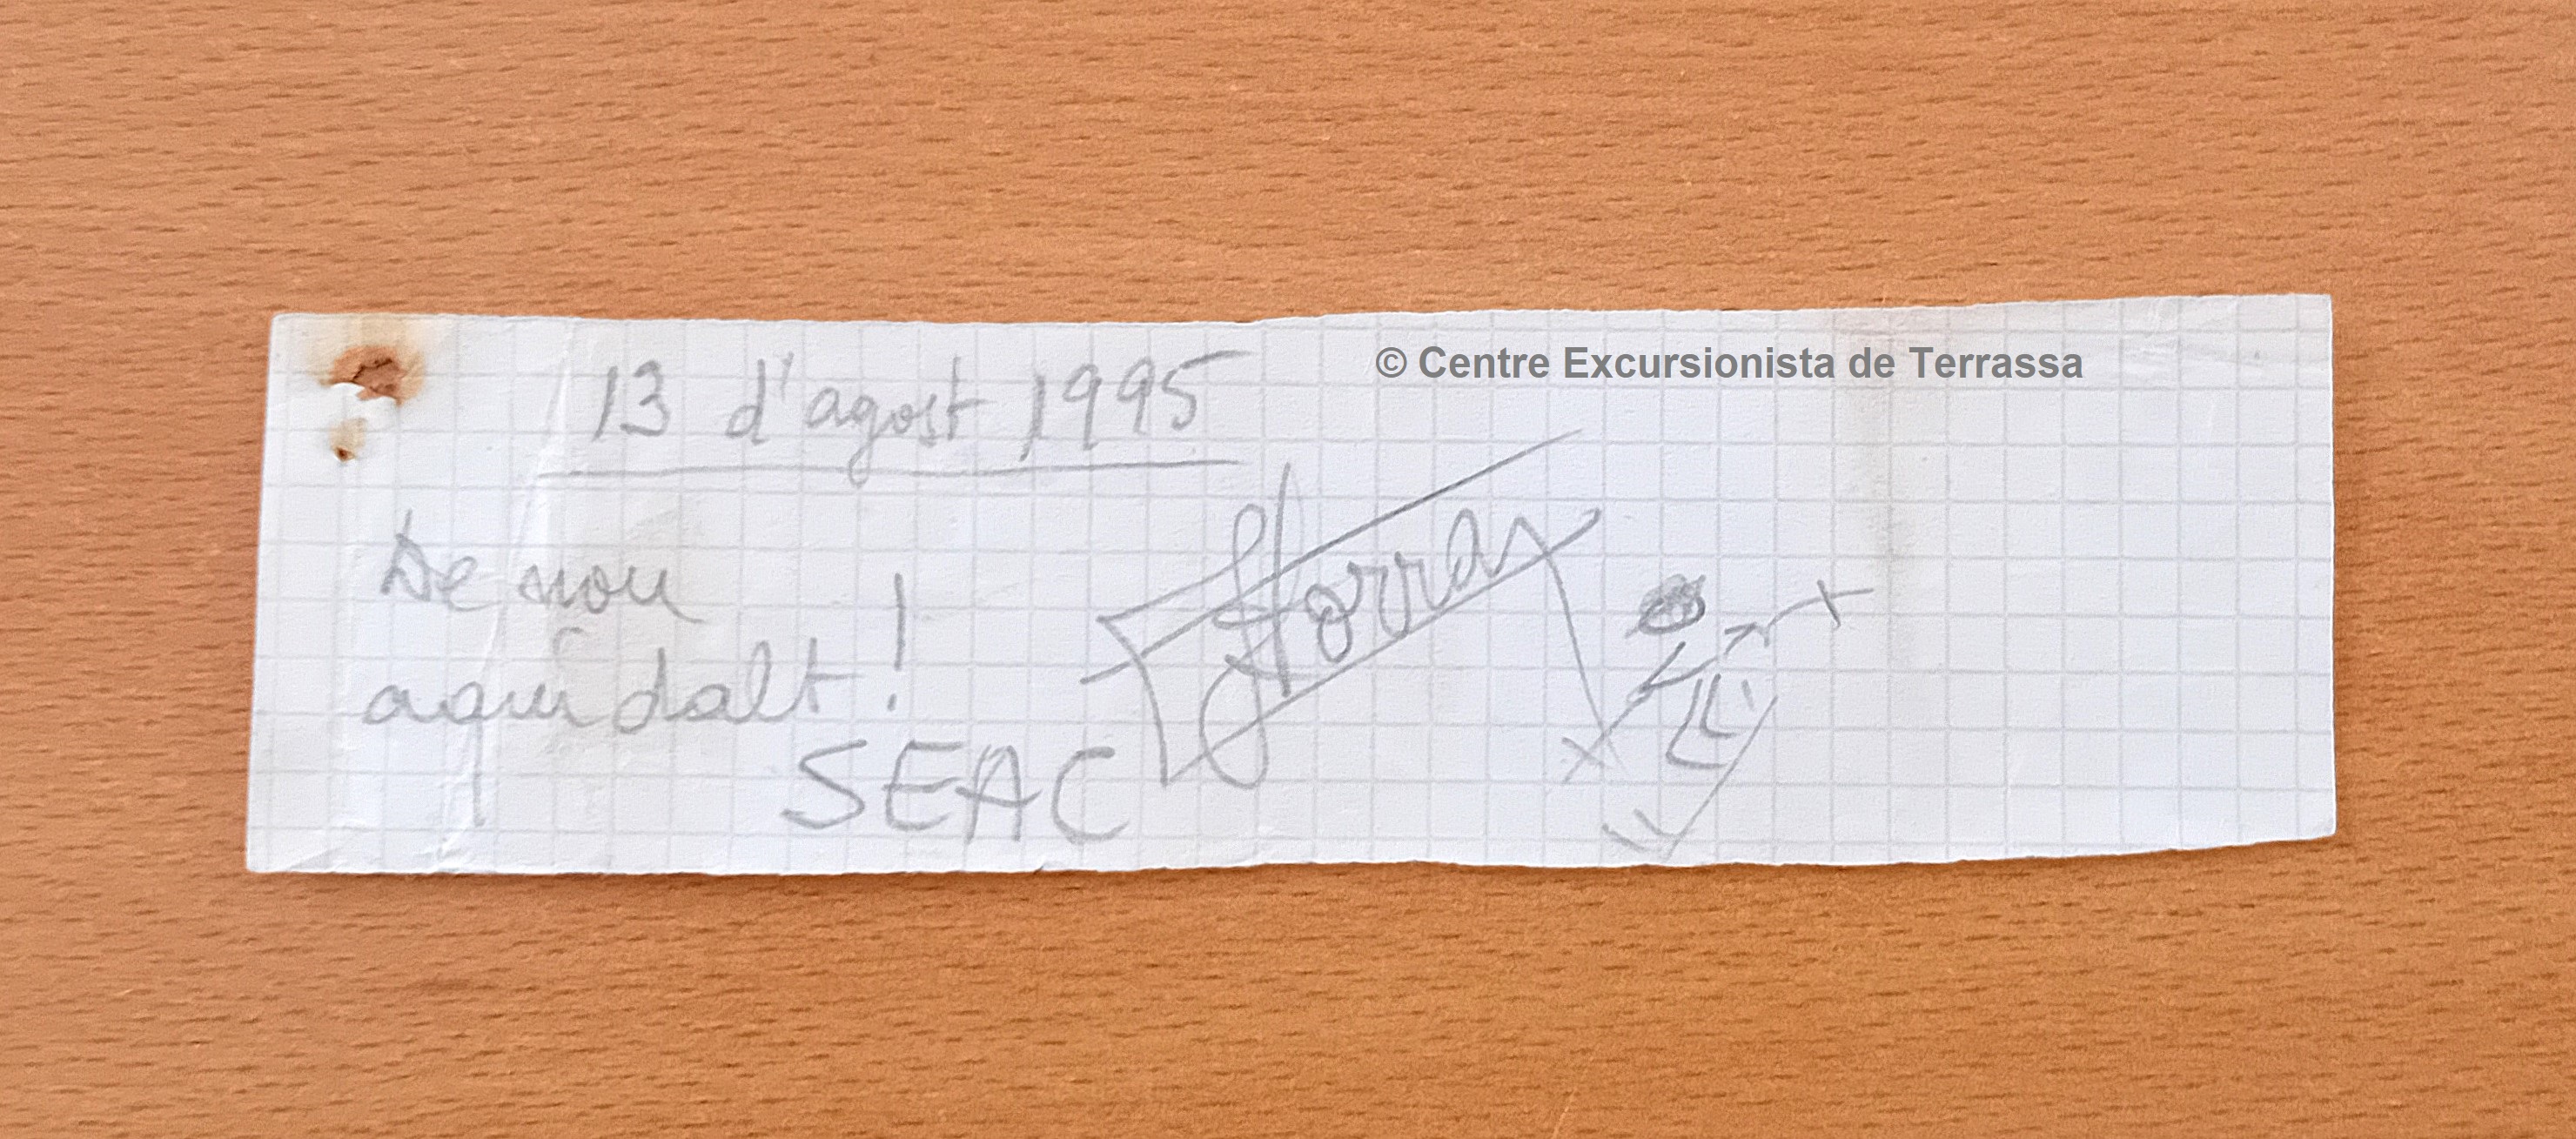 © Centre Excursionista de Terrassa
13 d'agost 1995
De nou
aqui dalt!
SEAC